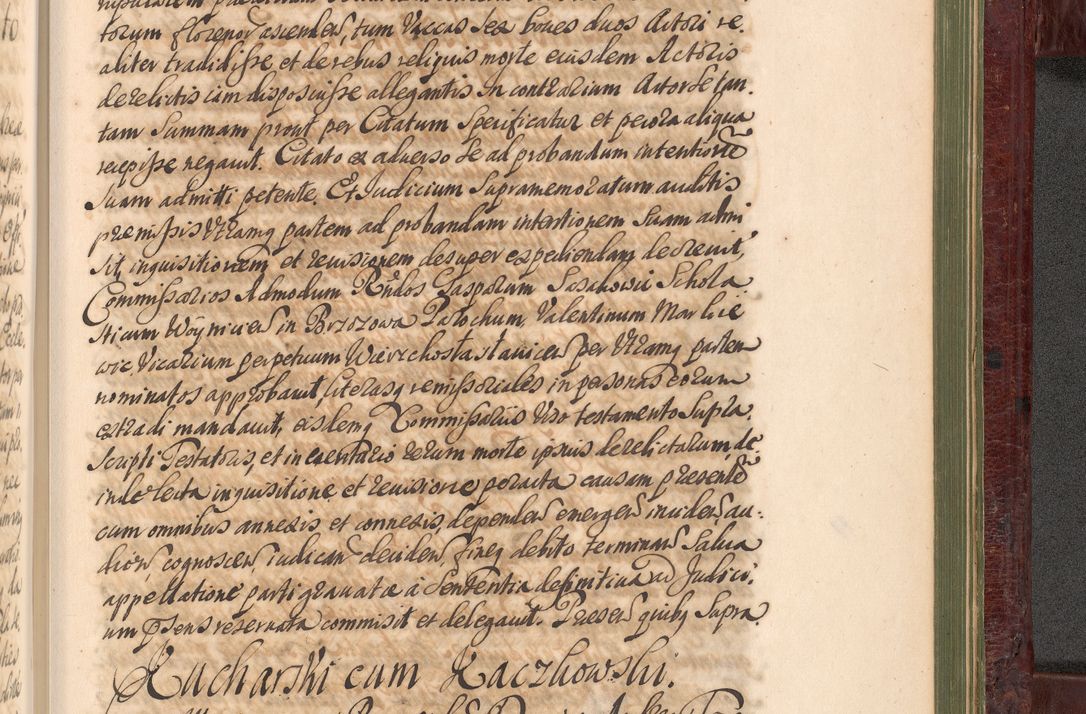 torum florenor ascenden, tum Vaccas sex boues duos Actori re.
aliter tradidisse, et de rebus reliquis morte eiusdem Actoris
derelictis cum disposuisse allegantis In contrarium Actor se tan.
tam Summam prout per Citatum Specificatur et pecora aliqua
recepisse negauit. Citato ex aduerso se ad probandum intentione
suam admitti petente. Et Judicium Supramemoratum auditis
premissis Utramq partem ad probandam intentionem Suam admi
sit, inquisitionem et reuisionem desuper expediendam decreuit,
Commissarios Admodum Rndos Gasparum Sasakowic Schola.
sticum Woynicien in Brzozowa Parochum, Valentinum Markie
wic Vicarium perpetuum Wierzchostastauicen per Utramq partem
nominatos approbauit, literasq remissoriales in personas eorum
extradi mandauit, eislemq Commissariis Uiso testamento Supra.
scripti Testatoris, et inuentario rerum morte ipsius derelictarum, de.
inde lecta inquisitione et reuisione peracta causam presente
cum omnibus annexis et connexis, dependen emergen inciden, au.
dien, cognoscen, iudican deciden, fineq debito terminan Salua
appellatione parti grauatæ à Sententia definitiua ad Judici.
um psens reseruata commisit et delegauit. Presen quibq Supra
Kucharski cum Kaczkowski.